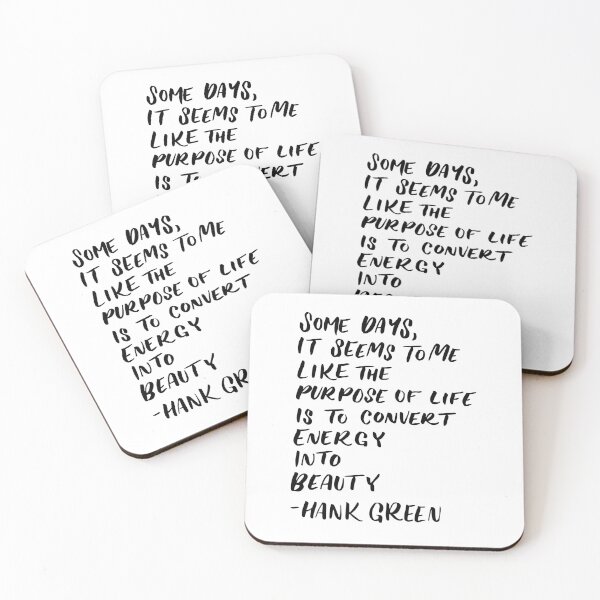 SOME DAYS,
IT SEEMS TO ME
LIKE THE
PURPOSE OF LIFE
IS TO
SOME DAYS,
IT SEEMS TO ME
LIKE THE
PURPOSE OF LIFE
IS TO CONVERT
ENERGY
INTO
SOME DAYS,
IT SEEMS TO ME
LIKE THE
PURPOSE OF LIFE
IS TO CONVERT
ENERGY
INTO
BEAUTY
-HANK
SOME DAYS,
IT SEEMS TO ME
LIKE THE
PURPOSE OF LIFE
IS TO CONVERT
ENERGY
INTO
BEAUTY
-HANK GREEN